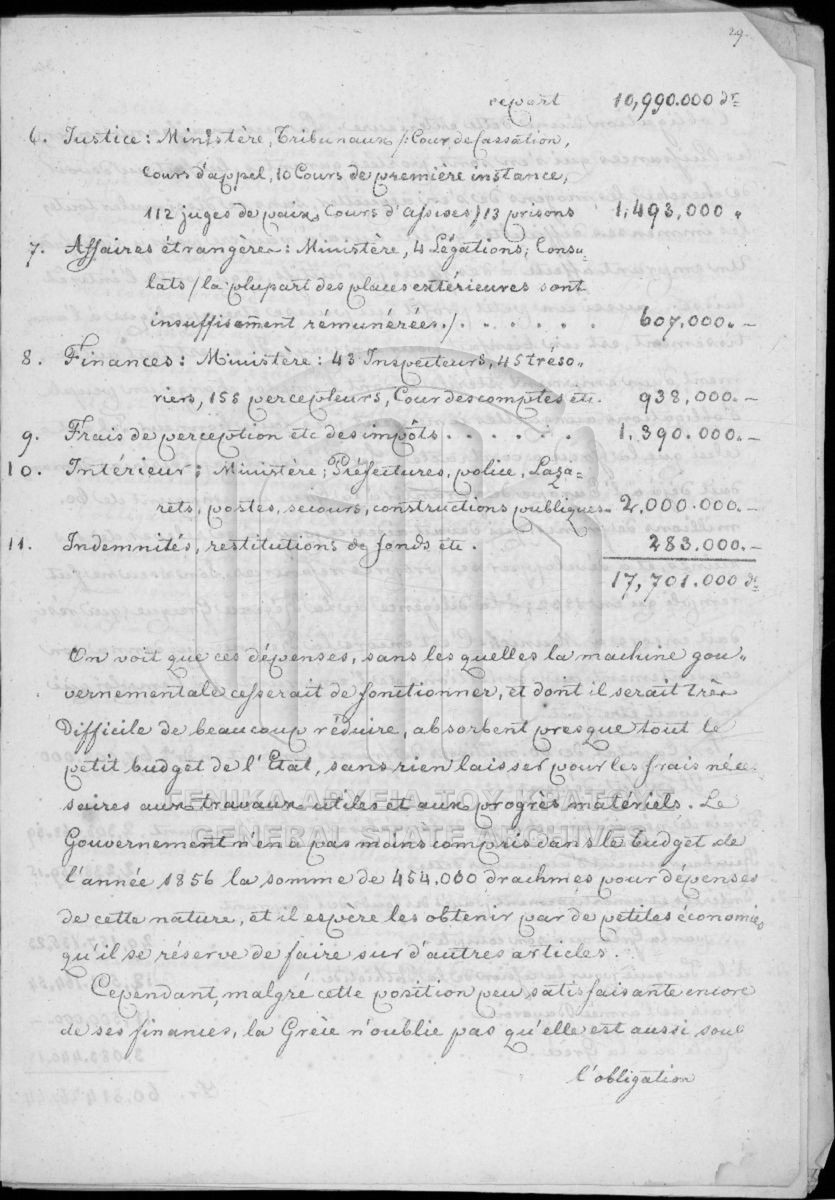 29.
report 10,990.000 dr
6. Justice: Ministère, Tribunaux /: Cour de Cassation,
Cours d'appel, 10 Cours de première instance,
112 juges de paix, Cours d'Assises, 13 prisons 1,493,000 "
7. Affaires étrangères: Ministère, 4 Légations, Consu-
lats / la plupart des places extérieures sont
insuffisamment rémunérées./. . . . . . . 607,000. –
8. Finances: Ministère: 43 Inspecteurs, 45 tréso-
riers, 158 percepteurs, Cour des comptes etc. 938,000. –
9. Frais de perception etc des impôts. . . . . . . 1,390.000. –
10. Intérieur: Ministère, Préfectures, police, Laza-
rets, postes, secours, constructions publiques. 2,000.000. –
11. Indemnités, restitutions de fonds etc. 283,000. –
17,701.000 dr
On voit que ces dépenses, sans les quelles la machine gou-
vernementale cesserait de fonctionner, et dont il serait très
difficile de beaucoup réduire, absorbent presque tout le
petit budget de l'Etat, sans rien laisser pour les frais néces-
saires aux travaux utiles et aux progrès matériels. Le
ΓΕΝΙΚΑ ΑΡΧΕΙΑ ΤΟΥ ΚΡΑΤΟΥΣ
GENERAL STATE ARCHIVES
Gouvernement n'en a pas moins compris dans le budget de
l'année 1856 la somme de 454.000 drachmes pour dépenses
de cette nature, et il espère les obtenir par de petites économies
qu'il se réserve de faire sur d'autres articles.
Cependant, malgré cette position peu satisfaisante encore
de ses finances, la Grèce n'oublie pas qu'elle est aussi sous
l'obligation